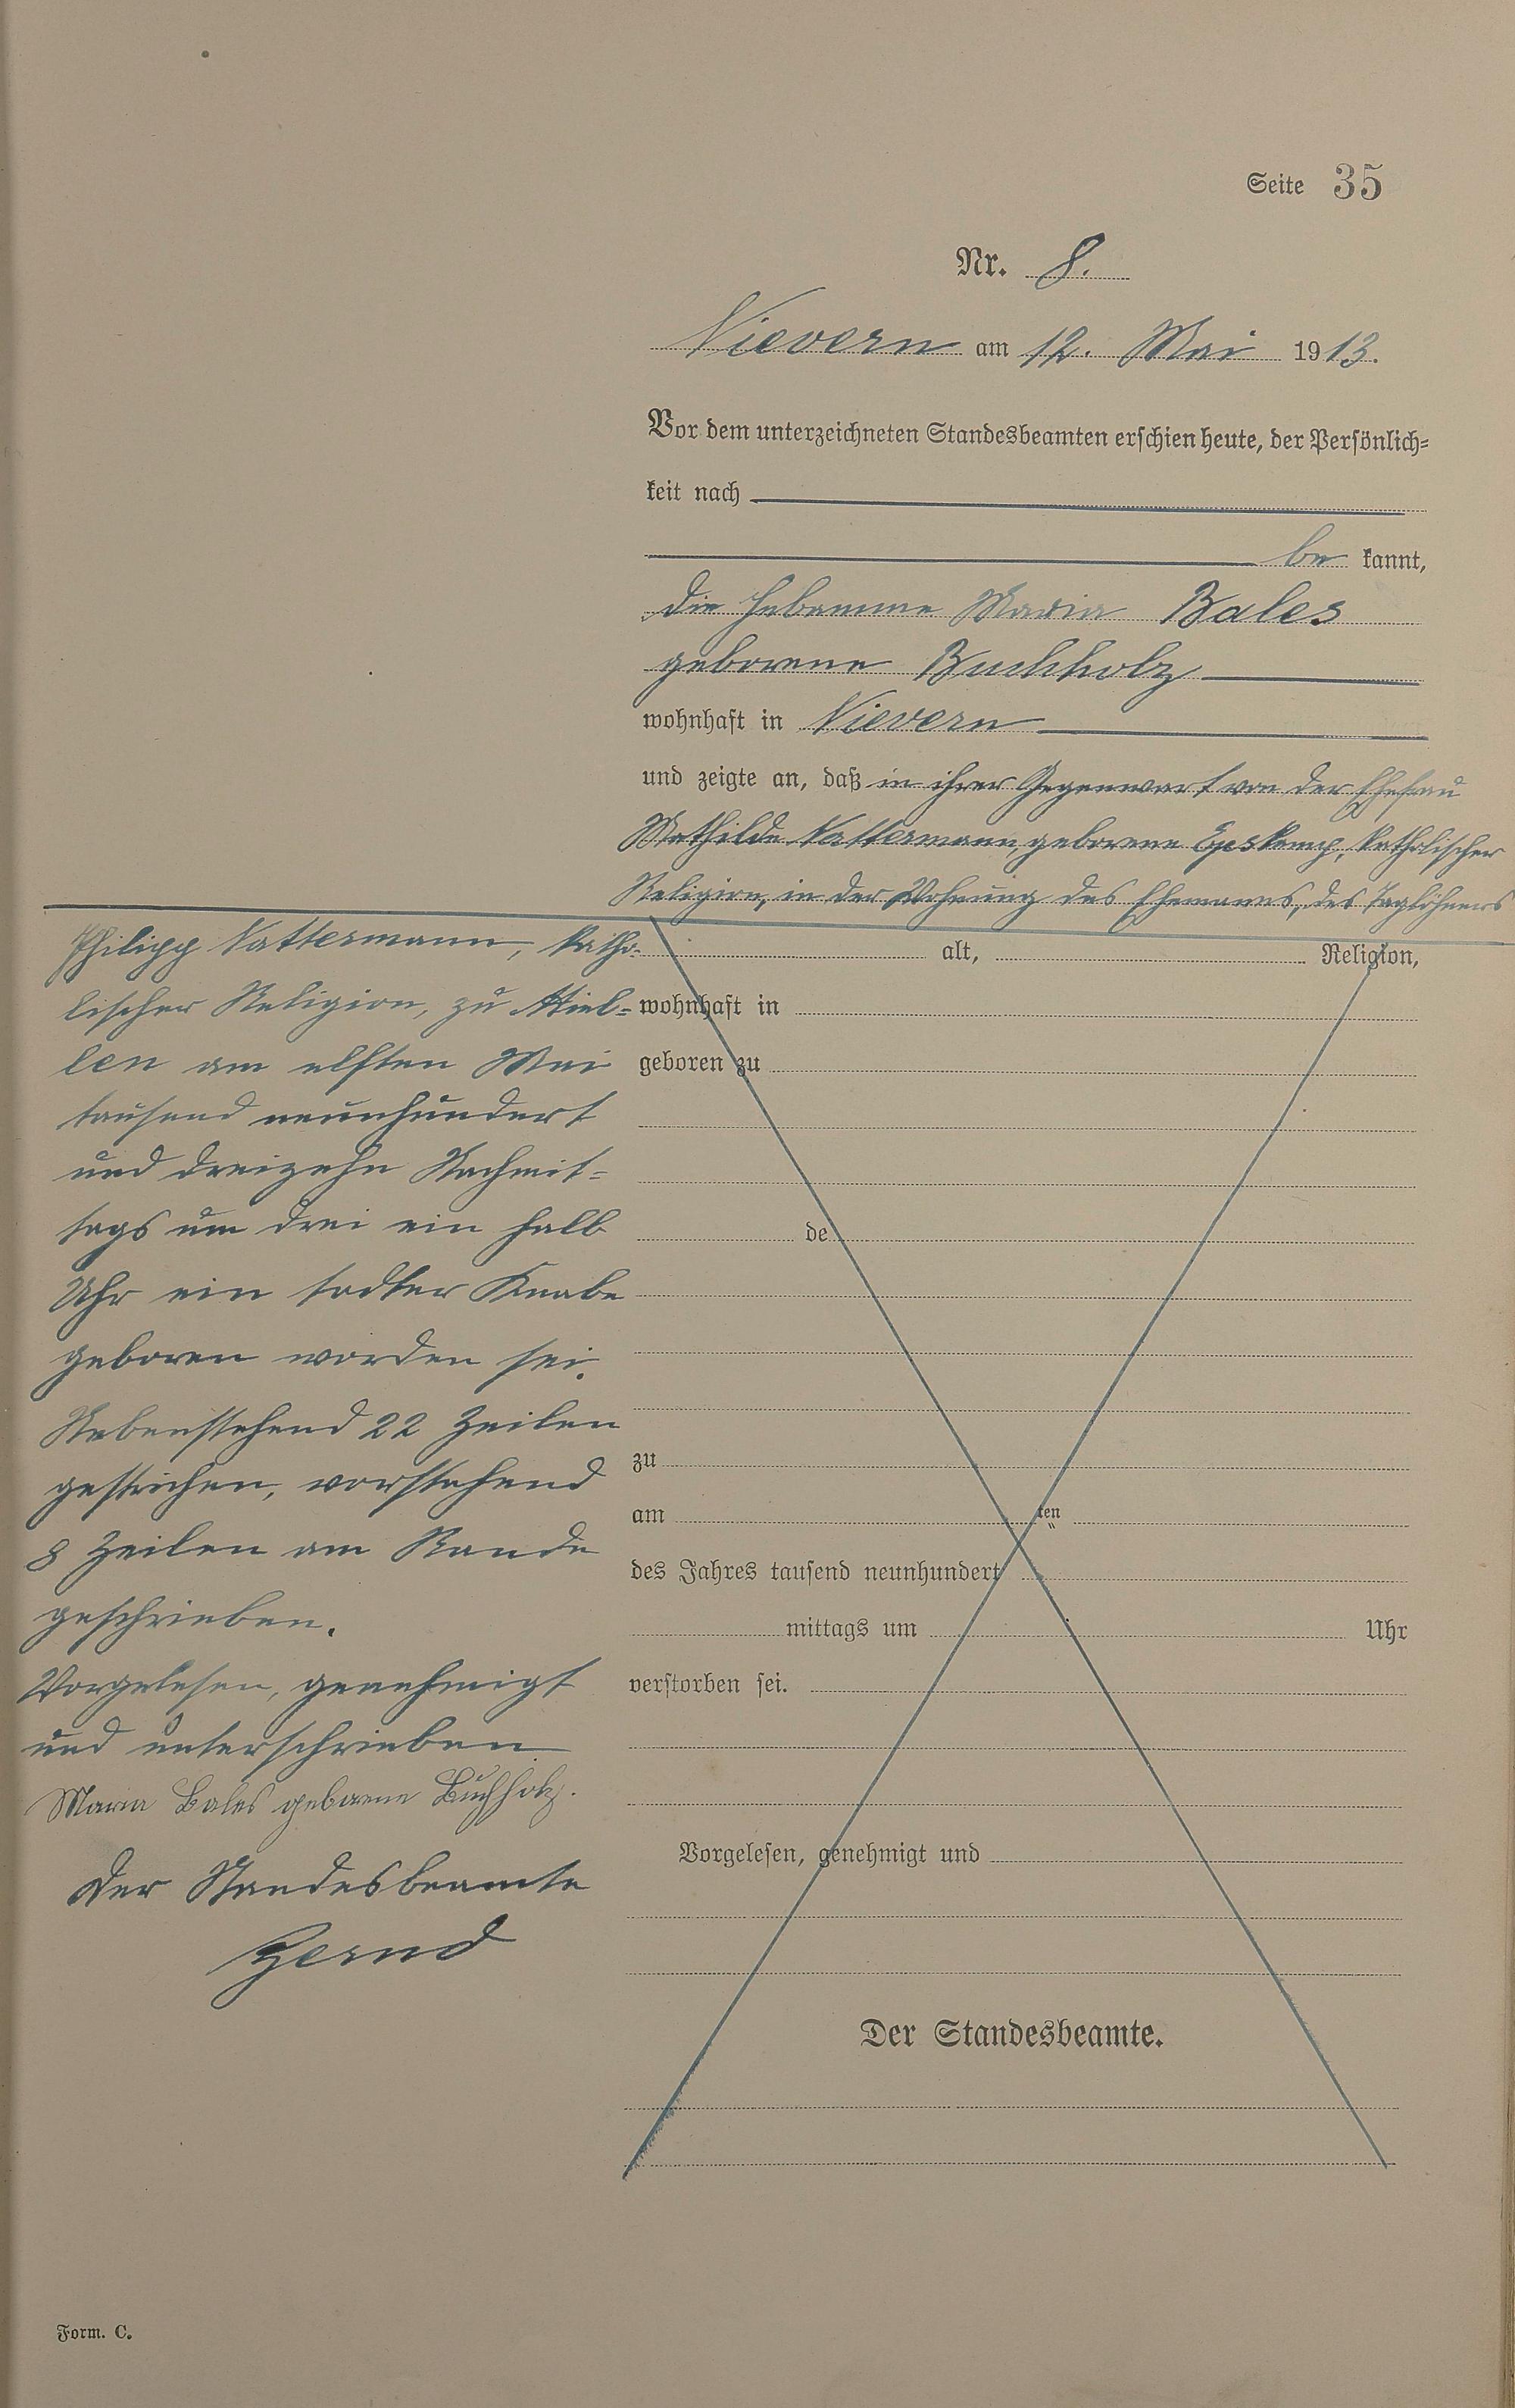 Seite 35
Nr. 8.
Nievern am 12. Mai 1913.
Vor dem unterzeichneten Standesbeamten erschien heute, der Persönlich-
keit nach
be kannt,
die Hebamme Maria Bales
geborene Buchholz
wohnhaft in Nievern
und zeigte an, daß in ihrer Gegenwart von der Ehefrau
Mathilde Nattermann, geborene Epskamp, katholischer
Religion, in der Wohnung des Ehemanns, des Taglöhners
Philipp Nattermann, katho-
lischer Religion, zu Miel-
len am elften Mai
tausend neunhundert
und dreizehn Nachmit-
tags um drei ein halb
Uhr ein todter Knabe
geboren worden sei.
Nebenstehend 22 Zeilen
gestrichen, vorstehend
8 Zeilen am Rande
geschrieben.
Vorgelesen, genehmigt
und unterschrieben
Maria Bales geborene Buchholz.
Der Standesbeamte
Zernd
alt, Religion,
wohnhaft in
geboren zu
de
zu
am ten
des Jahres tausend neunhundert
mittags um Uhr
verstorben sei.
Vorgelesen, genehmigt und
Der Standesbeamte.
Form. C.